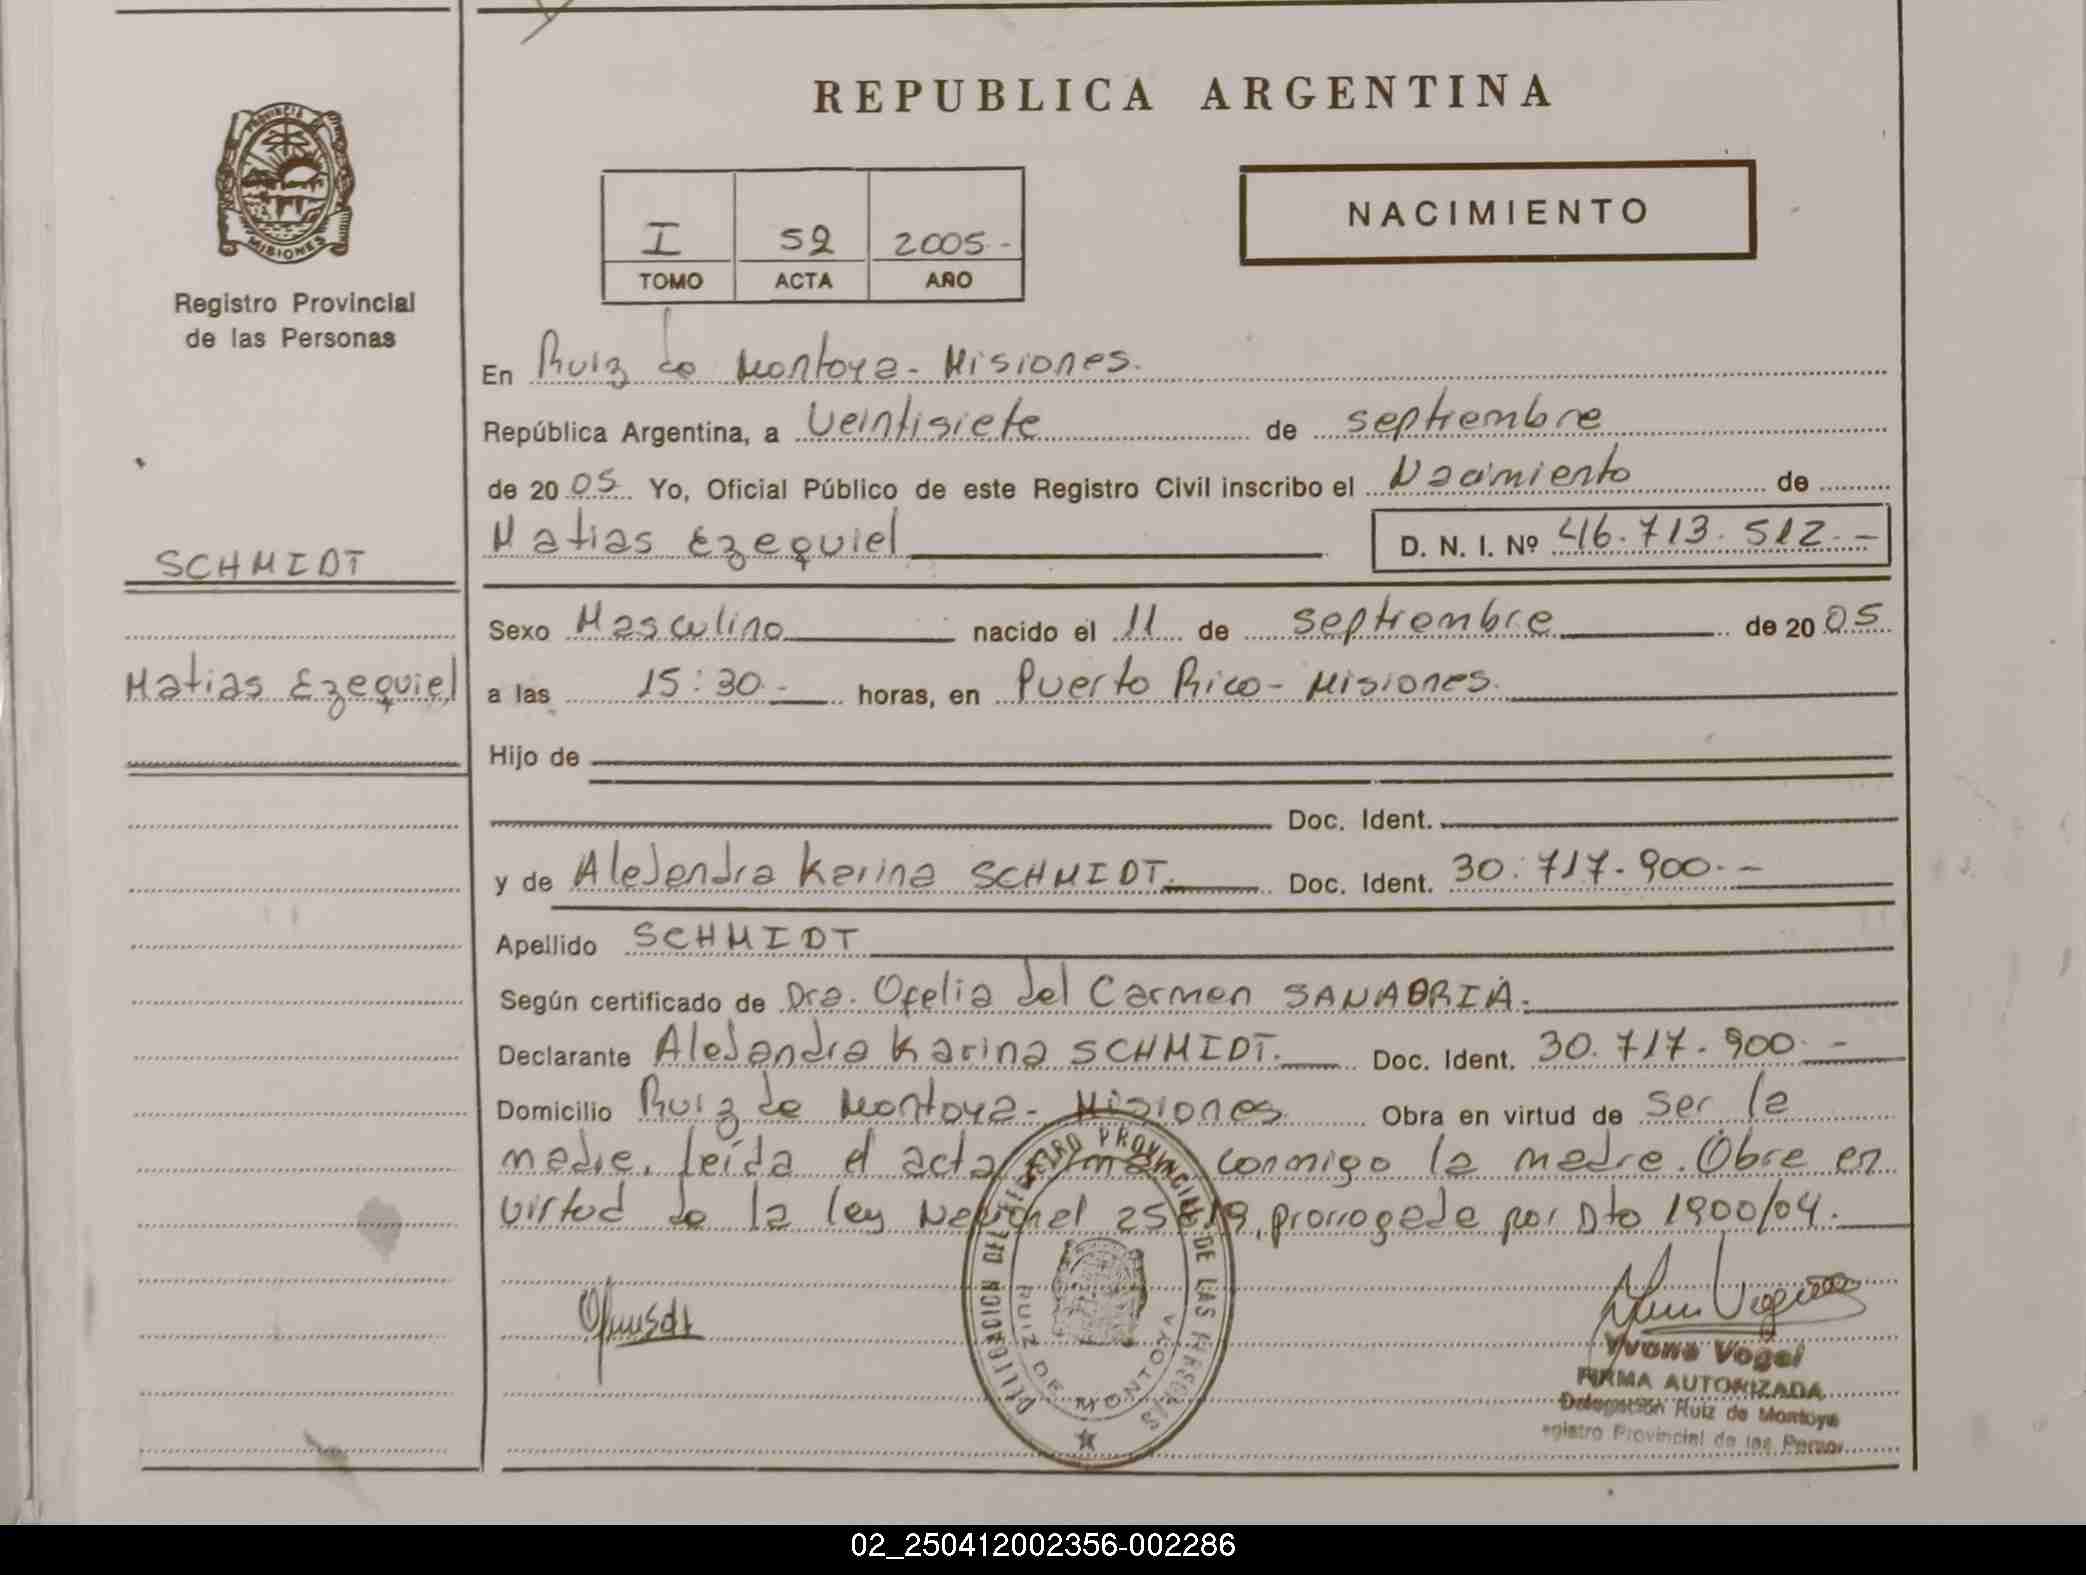 REPUBLICA ARGENTINA
PROVINCIA DE
MISIONES
Registro Provincial
de las Personas
NACIMIENTO
I 52 2005-
TOMO ACTA AÑO
En Ruiz de Montoya - Misiones.
República Argentina, a Veintisiete de septiembre
de 2005 Yo, Oficial Público de este Registro Civil inscribo el Nacimiento de
Matias Ezequiel D. N. I. Nº 46.713.512.-
SCHMIDT
Matias Ezequiel
Sexo Masculino nacido el 11 de septiembre de 2005
a las 15:30.- horas, en Puerto Rico - Misiones.
Hijo de
Doc. Ident.
y de Alejandra Karina SCHMIDT. Doc. Ident. 30.717.900.-
Apellido SCHMIDT
Según certificado de Dra. Ofelia del Carmen SANABRIA.
Declarante Alejandra Karina SCHMIDT. Doc. Ident. 30.717.900.-
Domicilio Ruiz de Montoya - Misiones Obra en virtud de ser la
madre. Leída el acta conmigo la madre. Obra en
virtud de la ley Nacional prorrogada por Dto 1900/04.
DELEGACION DEL REGISTRO PROVINCIAL DE LAS PERSONAS
RUIZ DE MONTOYA
Yvone Vogel
FIRMA AUTORIZADA
Delegación Ruiz de Montoya
egistro Provincial de las Person
02_250412002356-002286